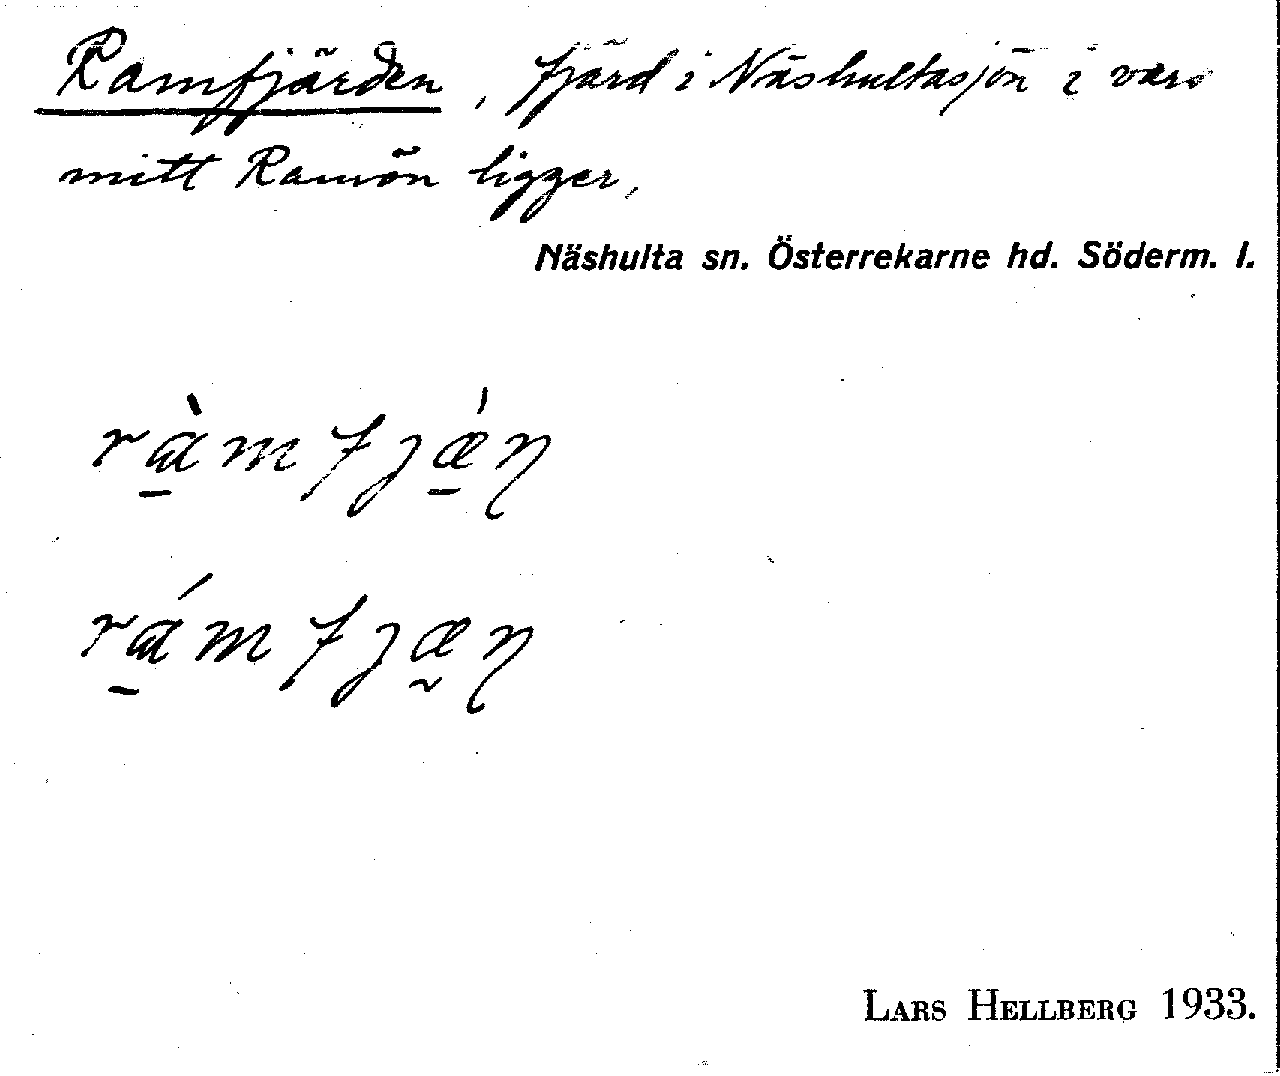 Ramfjärden, fjärd i Näshultasjön i vars
mitt Ramön ligger,
Näshulta sn. Österrekarne hd. Söderm. l.
rὰ̱mfjǽ̱ɳ
rά̱mfjæ̰ɳ
LARS HELLBERG 1933.